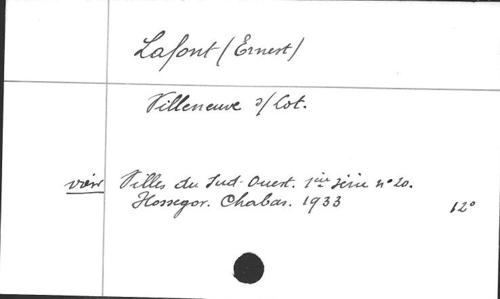 Lafont (Ernest)
Villeneuve s/ Lot.
voir Villes du Sud-Ouest. 1ère série n° 20.
Hossegor. Chabas. 1933 12°